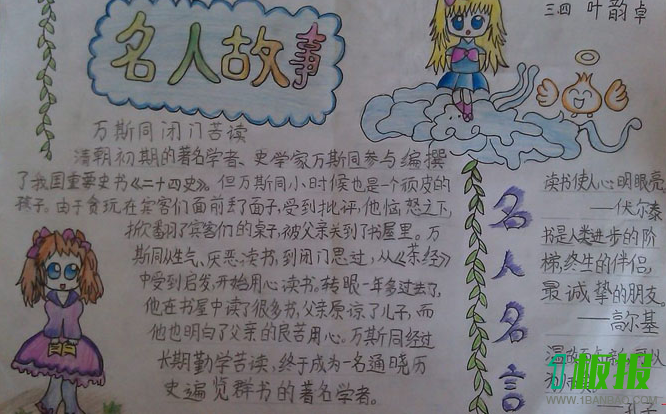 三.四 叶韵卓
名人故事
万斯同闭门苦读
清朝初期的著名学者、史学家万斯同参与编撰
了我国重要史书《二十四史》。但万斯同小时候也是一个顽皮的
孩子。由于贪玩在宾客们面前丢了面子,受到批评,他恼怒之下,
掀翻了宾客们的桌子,被父亲关到了书屋里。万
斯同从生气、厌恶读书,到闭门思过,从《茶经》
中受到启发,开始用心读书。转眼一年多过去了,
他在书屋中读了很多书,父亲原谅了儿子,而
他也明白了父亲的良苦用心。万斯同经过
长期勤学苦读,终于成为一名通晓历
史遍览群书的著名学者。
名人名言
读书使人心明眼亮
——伏尔泰
书是人类进步的阶
梯,终生的伴侣,
最诚挚的朋友
——高尔基
温故
孔子
1板报
WWW.1BANBAO.COM